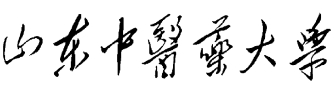 山东中醫藥大学